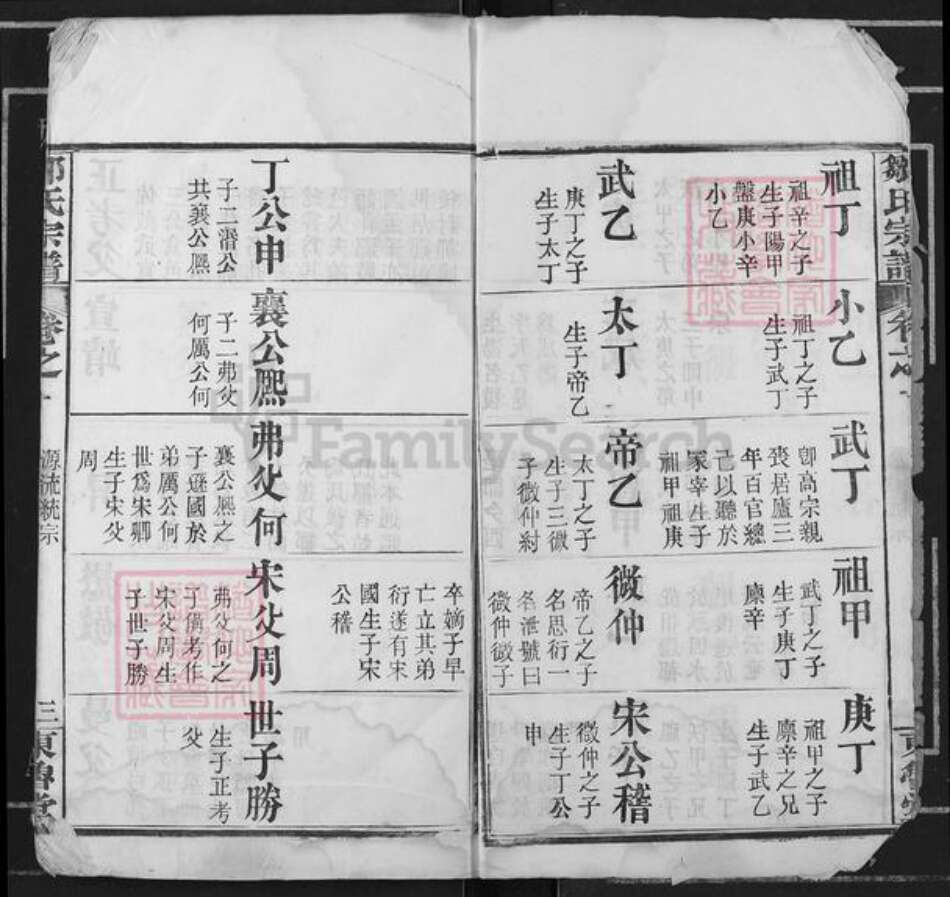 鄒氏宗譜
卷之一
祖丁
祖辛之子
生子陽甲
盤庚小辛
小乙
小乙
祖丁之子
生子武丁
武丁
卽高宗親
喪居廬三
年百官總
己以聽於
冢宰生子
祖甲祖庚
祖甲
武丁之子
生子庚丁
廪辛
庚丁
祖甲之子
廪辛之兄
生子武乙
武乙
庚丁之子
生子太丁
太丁
生子帝乙
帝乙
太丁之子
生子三微
子微仲紂
微仲
帝乙之子
名思衍一
名泄號曰
微仲微子
宋公稽
微仲之子
生子丁公
申
卒嫡子早
亡立其弟
衍遂有宋
國生子宋
公稽
丁公申
子二湣公
共襄公熈
襄公熈
子二弗父
何厲公何
弗父何
襄公熈之
子遜國於
弟厲公何
世爲宋卿
生子宋父
周
宋父周
弗父何之
子僃考作
宋父周生
子世子勝
世子勝
生子正考
父
鄒氏宗譜
卷之一
源流統宗
三
東魯堂
FamilySearch